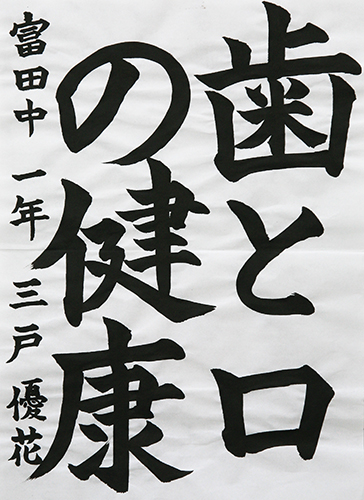 歯と口
の健康
富田中 一年 三戸 優花